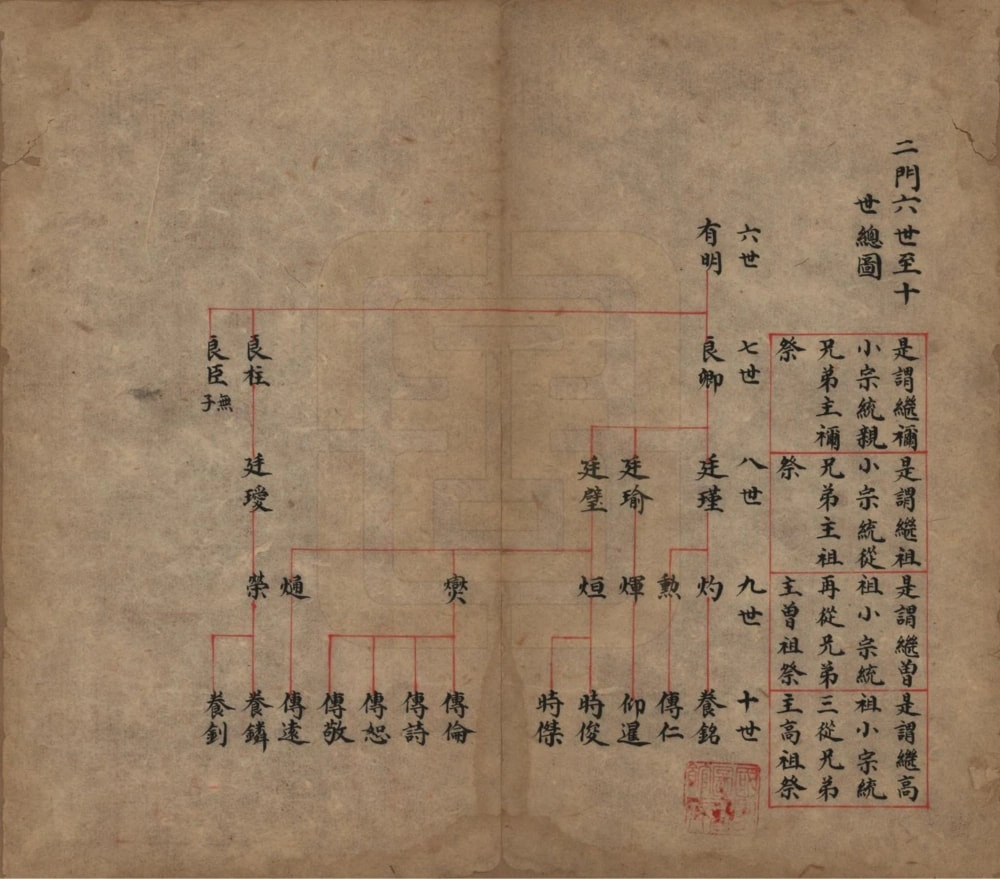 二門六世至十
世總圖
是謂繼禰
小宗統親
兄弟主禰
祭
是謂繼祖
小宗統從
兄弟主祖
祭
是謂繼曾
祖小宗統
再從兄弟
主曾祖祭
是謂繼高
祖小宗統
三從兄弟
主高祖祭
六世
有明
七世
良卿
良柱
良臣無子
八世
廷瑾
廷瑜
廷璧
廷璦
九世
灼
勲
煇
烜
爕
熥
榮
十世
養銘
傳仁
仰暹
時俊
時傑
傳倫
傳詩
傳恕
傳敬
傳遠
養鏻
養釗